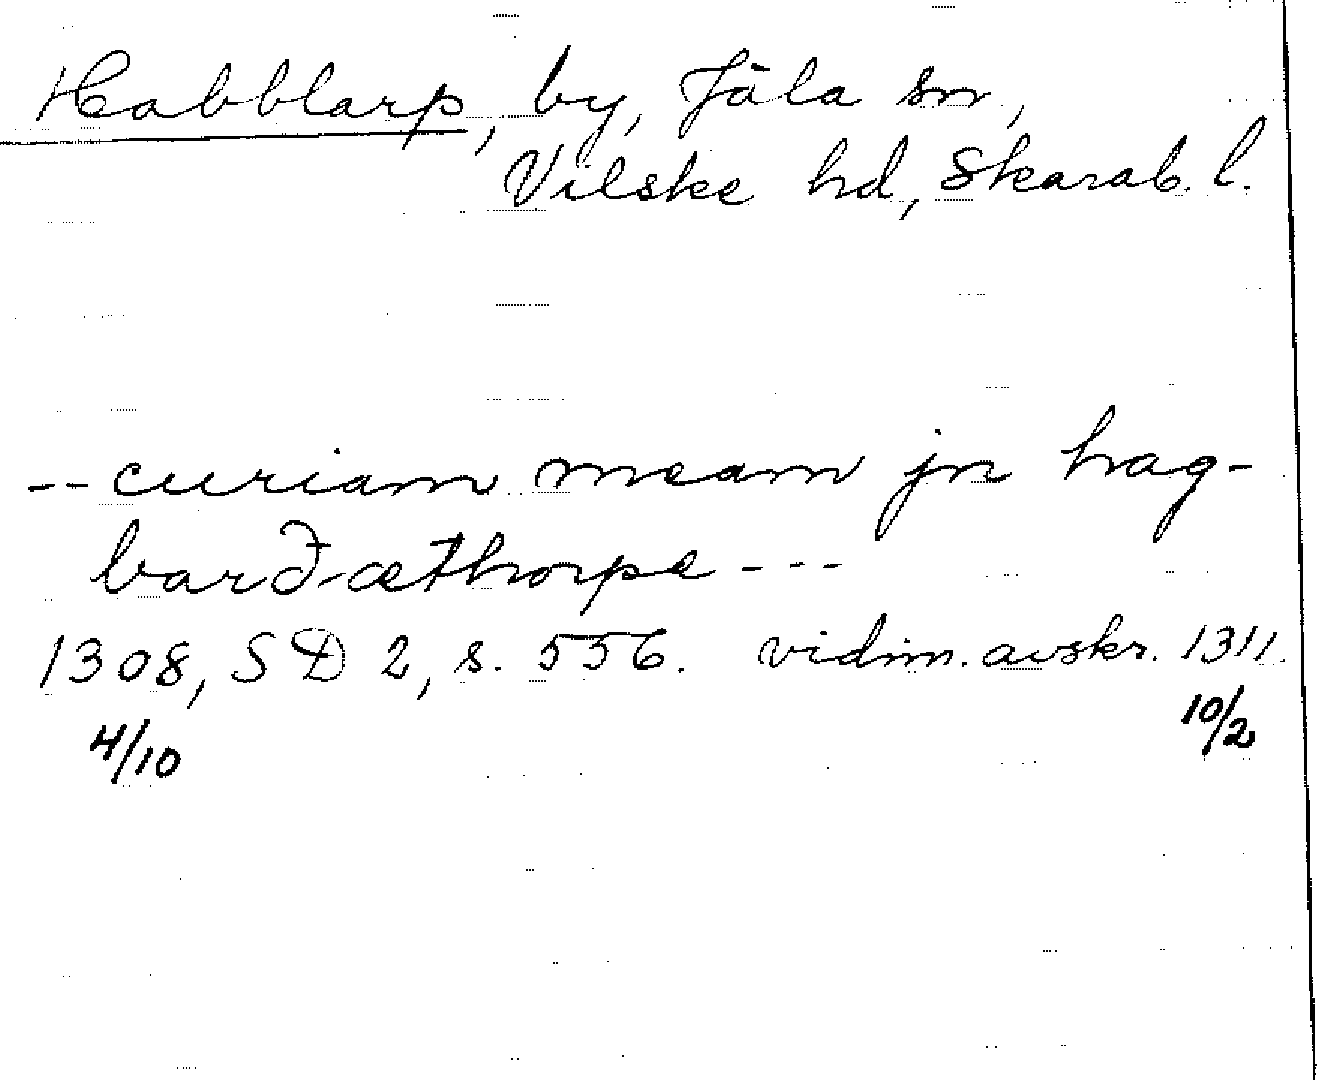 Habblarp, by, Jäla sn,
Vilske hd, Skarab. l.
-- curiam meam jn hag-
barð-æthorpe ---
1308, SD 2, s. 556. vidim. avskr. 1311.
4/10 10/2